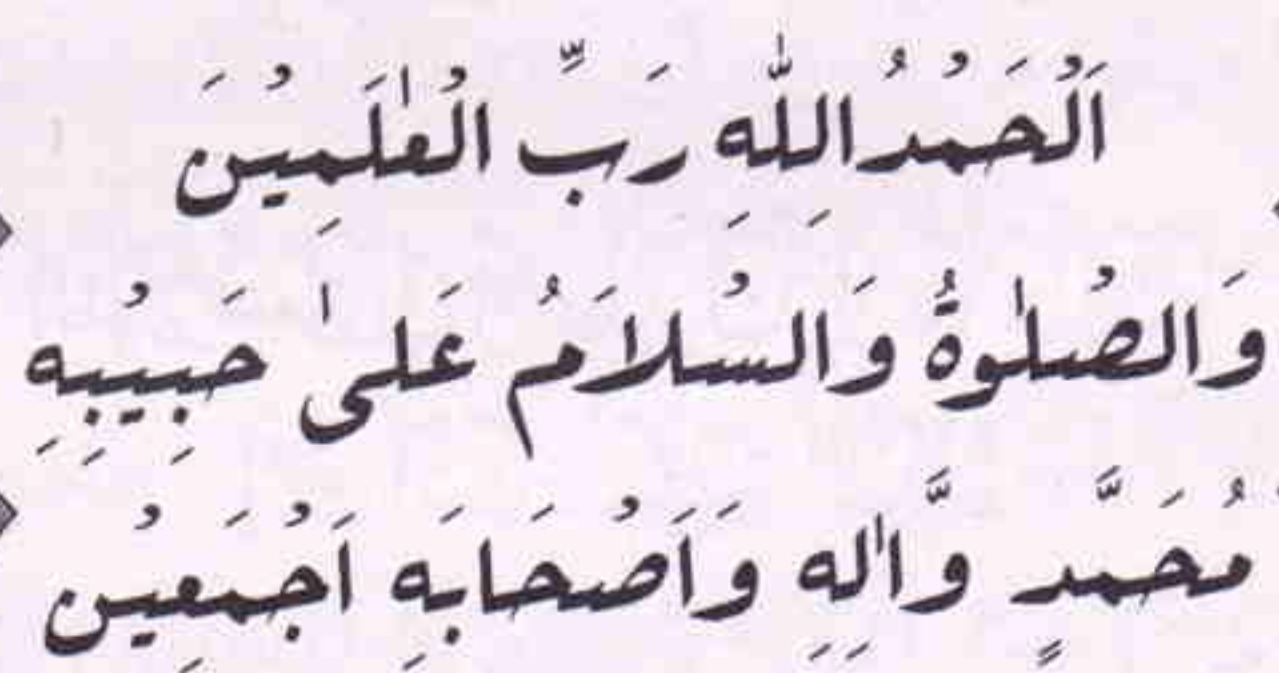 اَلْحَمْدُ اللّٰهِ رَبِّ الْعٰلَمِيْنَ
وَالصْلٰوةُ وَالسْلاَمُ عَلىٰ حَبِيْبِهِ
مُحَمَّدٍ وَّاٰلِهِ وَاَصْحَابَهِ اَجْمَعِيْن